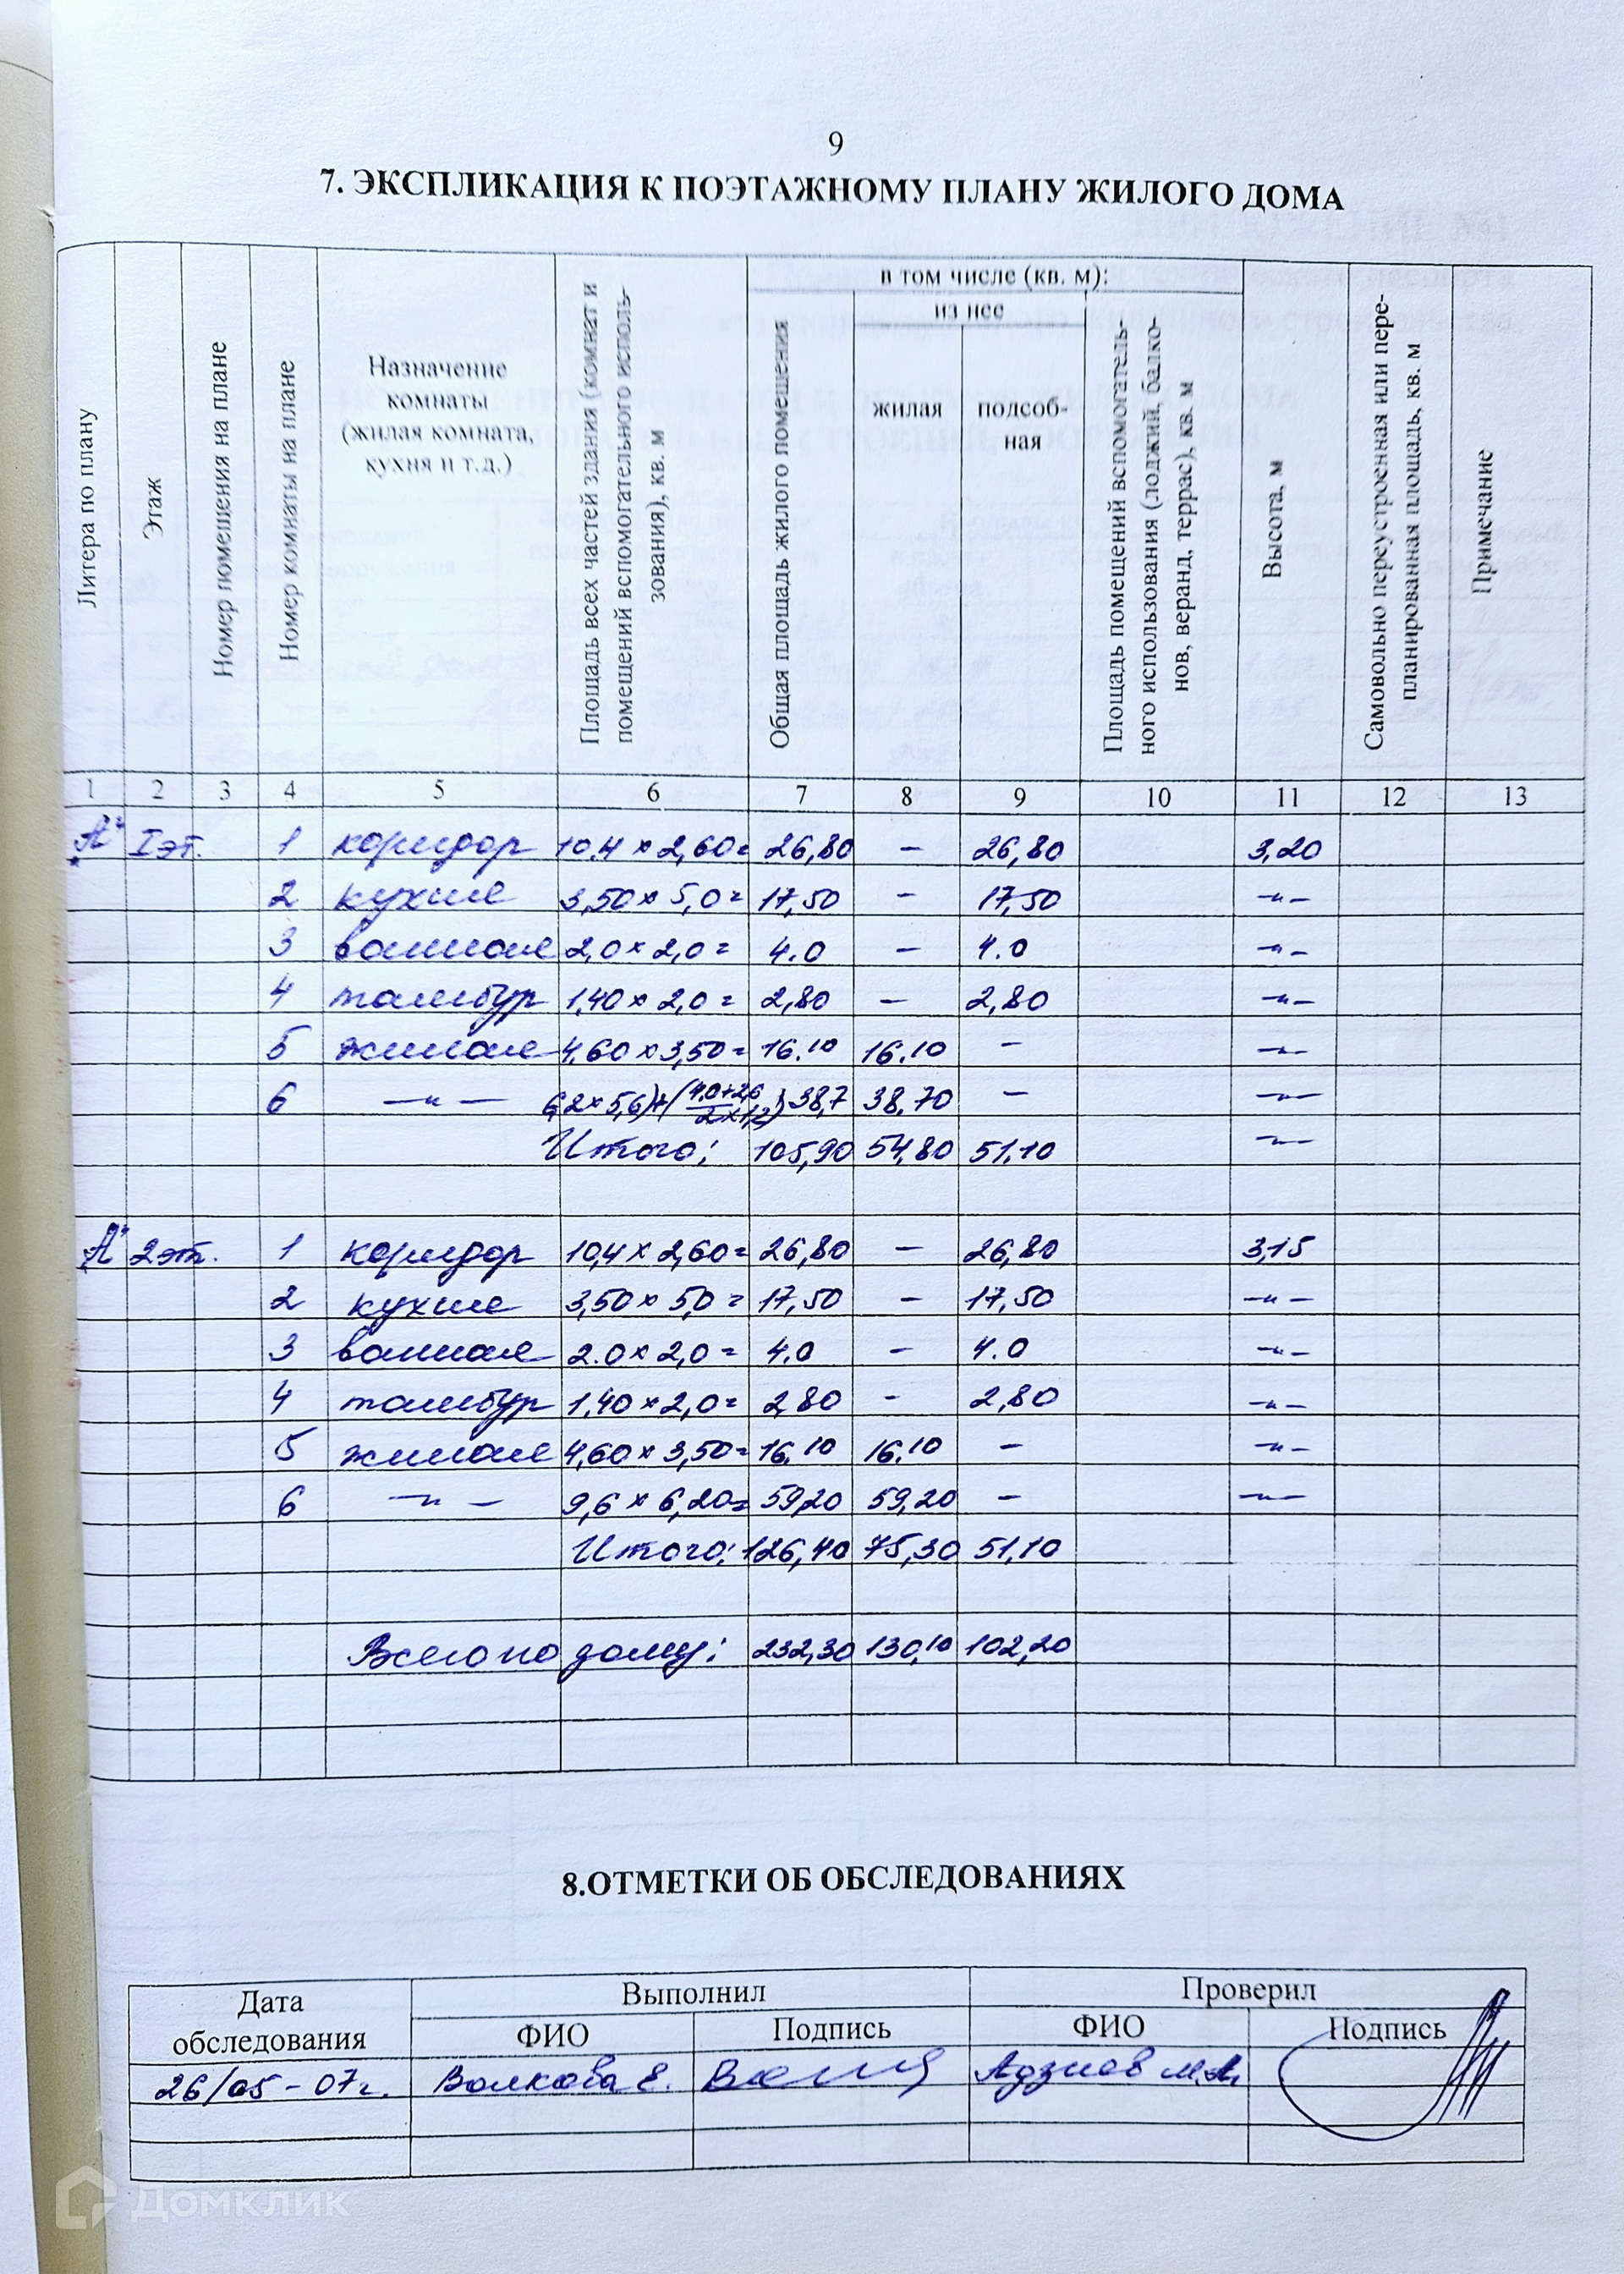 9
7. ЭКСПЛИКАЦИЯ К ПОЭТАЖНОМУ ПЛАНУ ЖИЛОГО ДОМА
Литера по плану
Этаж
Номер помещения на плане
Номер комнаты на плане
Назначение
комнаты
(жилая комната,
кухня и т.д.)
Площадь всех частей здания (комнат и
помещений вспомогательного исполь-
зования), кв. м
в том числе (кв. м):
Общая площадь жилого помещения
из нее
жилая
подсоб-
ная
Площадь помещений вспомогатель-
ного использования (лоджий, балко-
нов, веранд, террас), кв. м
Высота, м
Самовольно переустроенная или пере-
планированная площадь, кв. м
Примечание
1 2 3 4 5 6 7 8 9 10 11 12 13
„А“ I эт. 1 коридор 10,4 × 2,60 = 26,80 — 26,80 3,20
2 кухня 3,50 × 5,0 = 17,50 — 17,50 —〃—
3 ванная 2,0 × 2,0 = 4.0 — 4.0 —〃—
4 тамбур 1,40 × 2,0 = 2,80 — 2,80 —〃—
5 жилая 4,60 × 3,50 = 16.10 16.10 — —〃—
6 —〃— 6,2 × 5,6) + (4,0+2,6 / 2 × 1,2) 38,7 38,70 — —〃—
Итого: 105,90 54,80 51,10 —〃—
„А“ 2 эт. 1 коридор 10,4 × 2,60 = 26,80 — 26,80 3,15
2 кухня 3,50 × 5,0 = 17,50 — 17,50 —〃—
3 ванная 2.0 × 2,0 = 4,0 — 4.0 —〃—
4 тамбур 1,40 × 2,0 = 2,80 — 2,80 —〃—
5 жилая 4,60 × 3,50 = 16,10 16,10 — —〃—
6 —〃— 9,6 × 6,20 = 59,20 59,20 — —〃—
Итого: 126,40 75,30 51,10
Всего по дому: 232,30 130,10 102,20
8.ОТМЕТКИ ОБ ОБСЛЕДОВАНИЯХ
Дата
обследования
Выполнил
Проверил
ФИО Подпись ФИО Подпись
26/05-07г. Волкова Е. Адзиев М.А.
Домклик